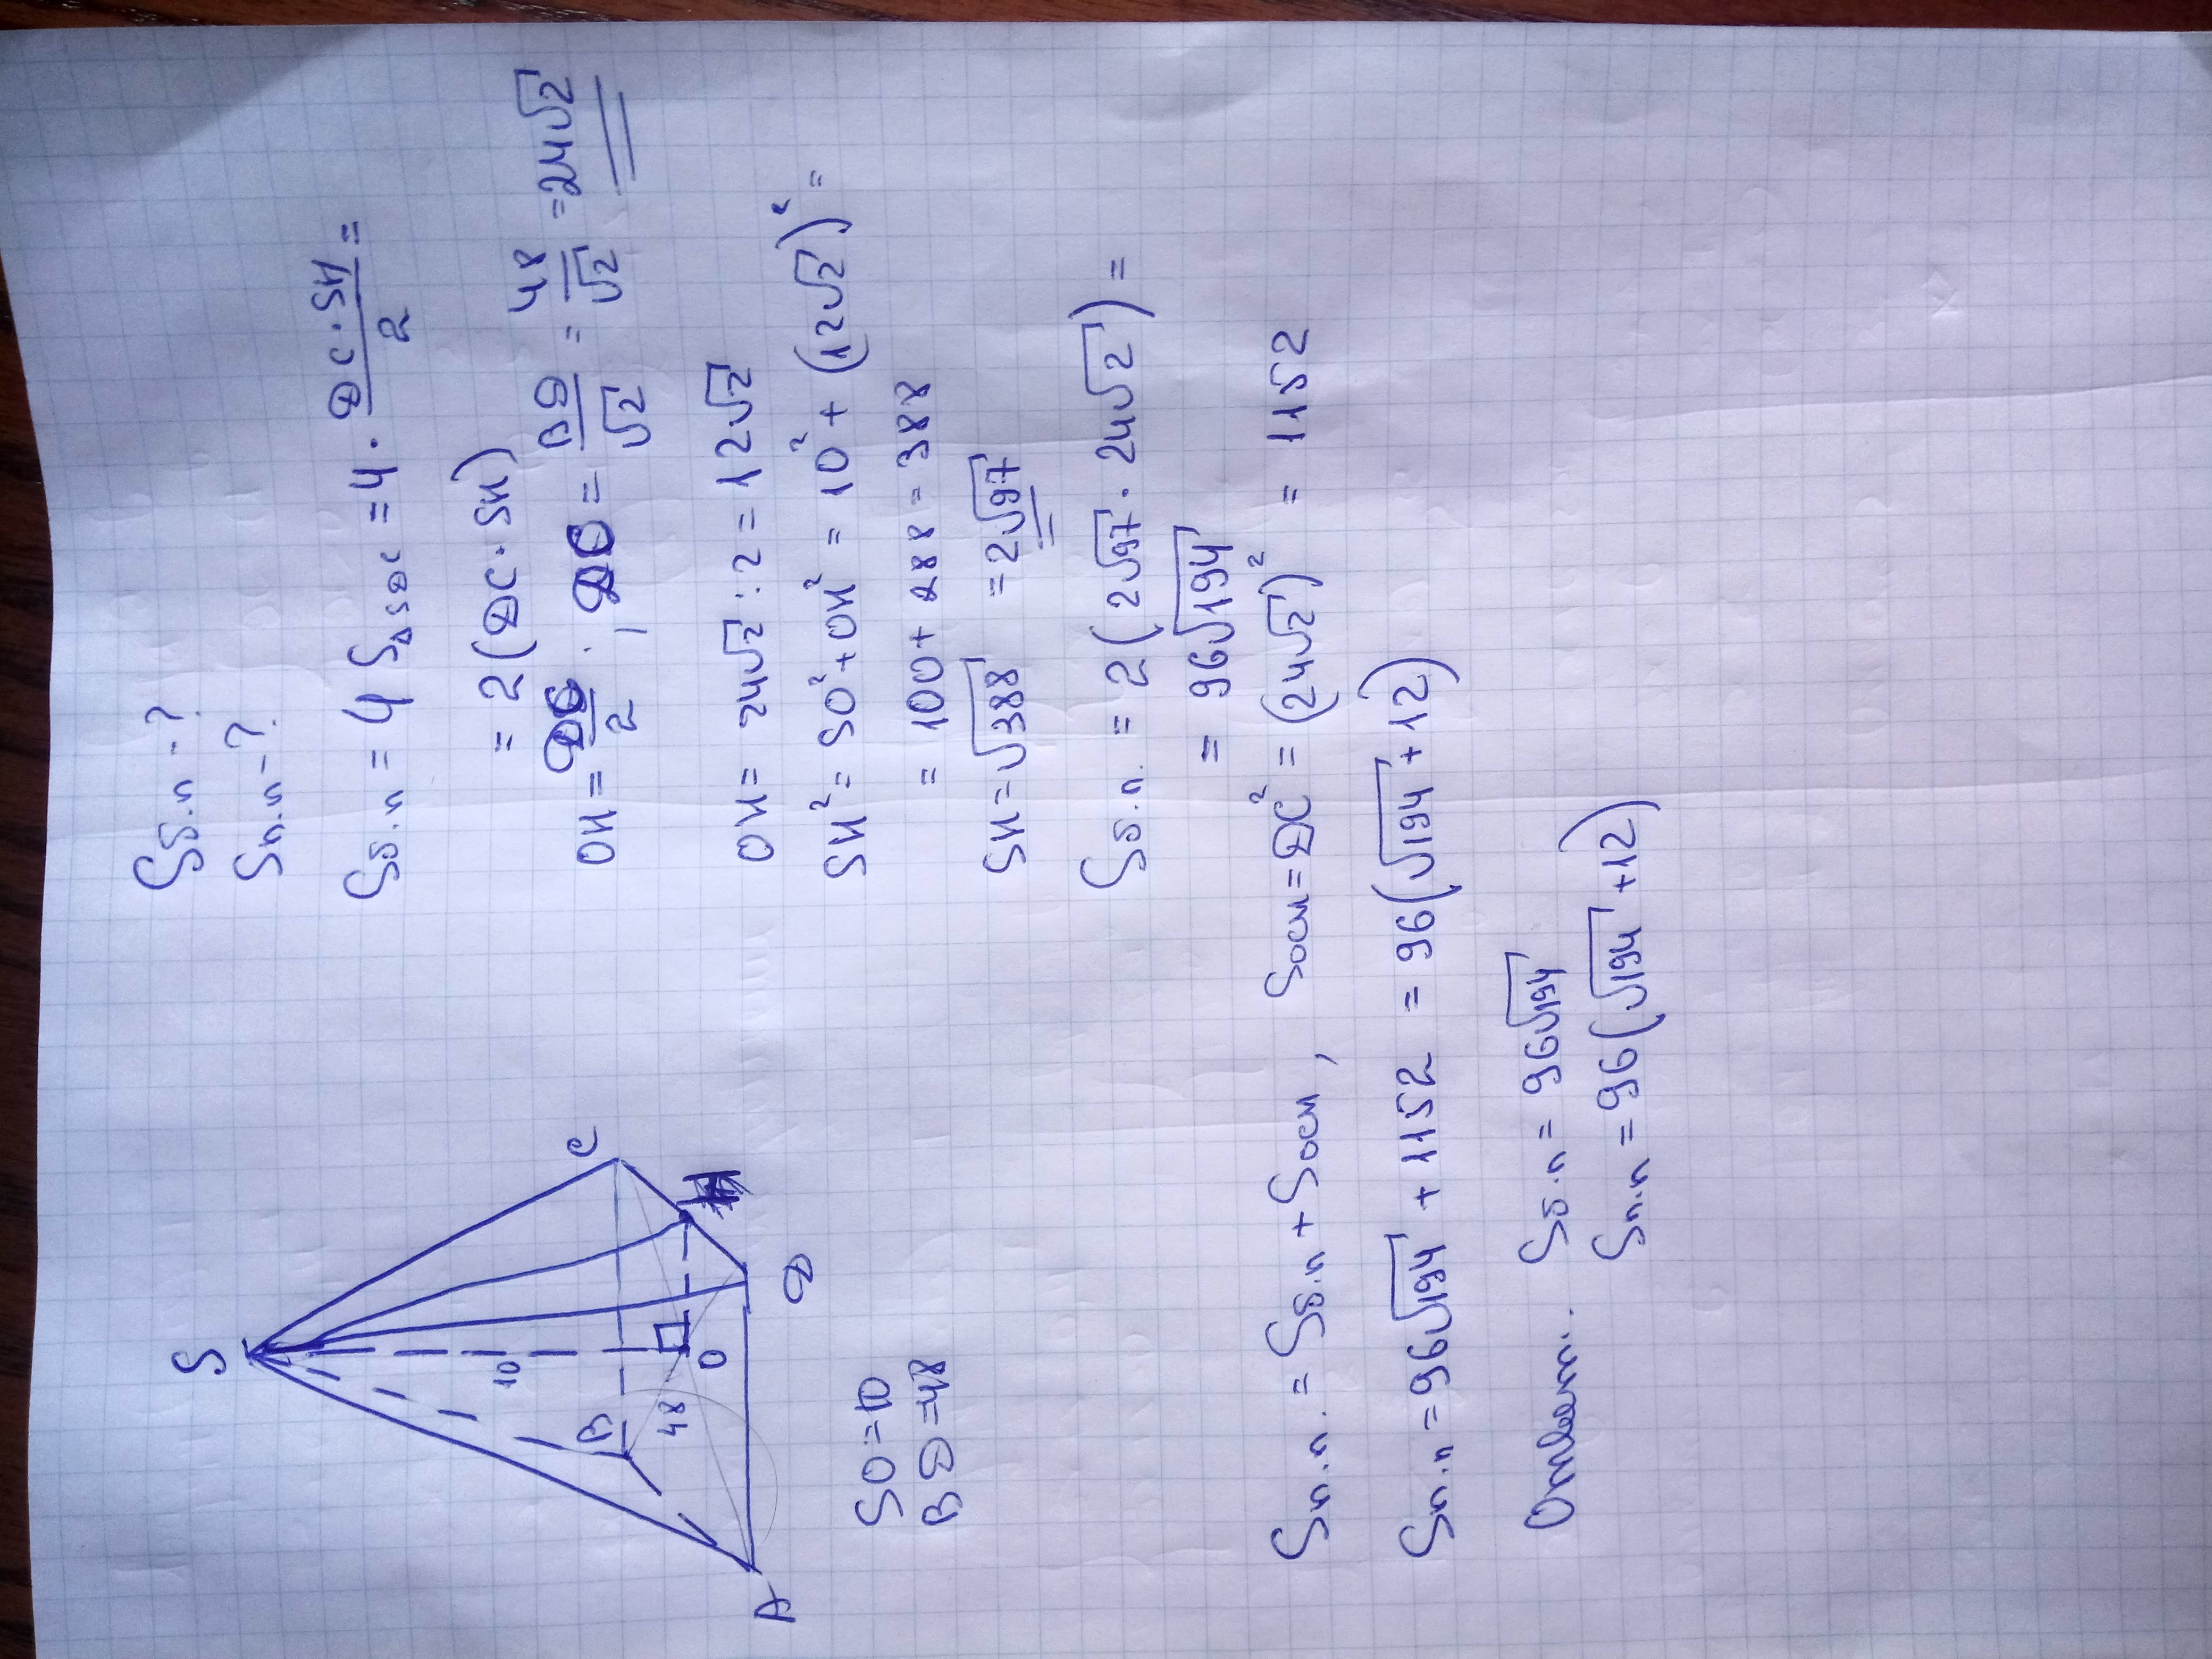 S
10
B
48
O
C
H
D
A
SO=10
BD=48
Sб.п -?
Sп.п -?
Sб.п = 4 S△SDC = 4 · DC·SH/2 =
= 2(DC·SH)
OH = DC/2 ; DC = BD/√2 = 48/√2 = 24√2
OH = 24√2 : 2 = 12√2
SH² = SO² + OH² = 10² + (12√2)² =
= 100 + 288 = 388
SH = √388 = 2√97
Sб.п. = 2(2√97 · 24√2) =
= 96√194
Sп.п. = Sб.п + Sосн , Sосн = DC² = (24√2)² = 1152
Sп.п = 96√194 + 1152 = 96(√194 + 12)
Ответ: Sб.п = 96√194
Sп.п = 96(√194 + 12)